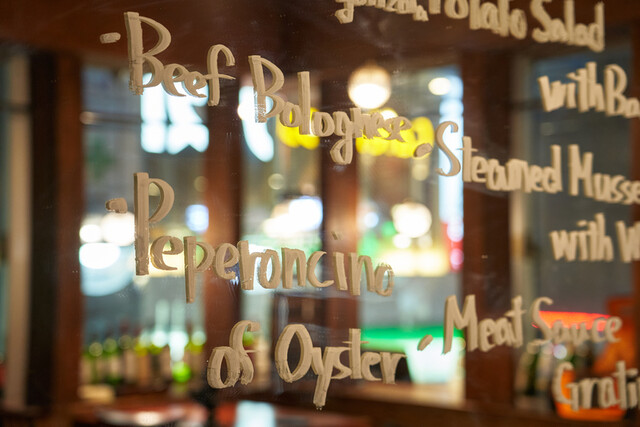 · Beef Bolognese
· Peperoncino
of Oyster
Potato Salad
with
· Steamed
with
· Meat Sauce